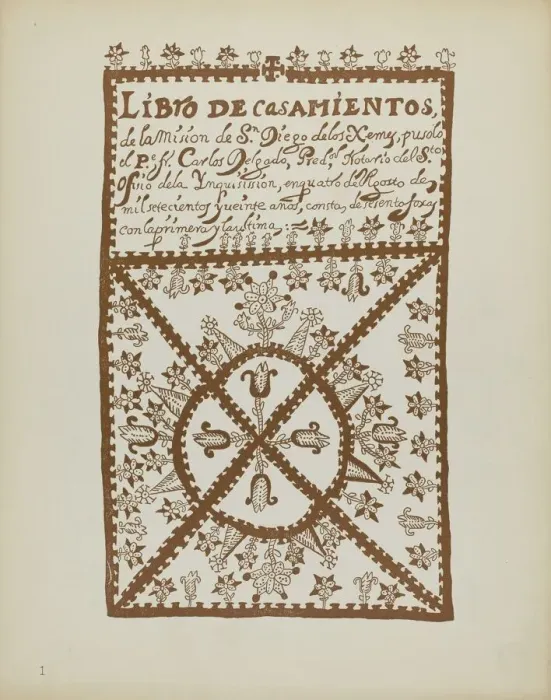 LiBro DE CASAMIENTOS,
de la Mision de Sn Diego de los Xemes, pusolo
el Pe. fr. Carlos Delgado, Predor Notario del Sto
Ofisio dela Ynquisission, enquatro de Agosto de
mil setecientos y ueinte años, consta, de sesento foxas
con la primera y laultima :~
1